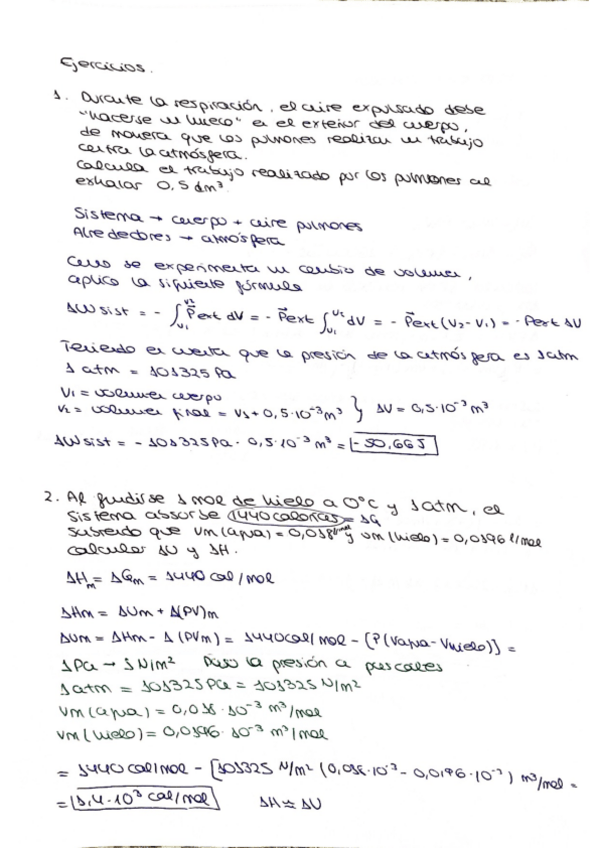 Ejercicios.
1. Durante la respiración, el aire expulsado debe
"hacerse un hueco" en el exterior del cuerpo,
de manera que los pulmones realizan un trabajo
contra la atmósfera.
Calcula el trabajo realizado por los pulmones al
exhalar 0,5 dm³.
Sistema → cuerpo + aire pulmones
Alrededores → atmósfera
Como se experimenta un cambio de volumen,
aplico la siguiente fórmula
ΔWsist = - ∫V₁V₂ P⃗ext dV = - P⃗ext ∫V₁V₂ dV = - P⃗ext (V₂-V₁) = - Pext ΔV
Teniendo en cuenta que la presión de la atmósfera es 1atm
1 atm = 101325 Pa
V₁ = volumen cuerpo
V₂ = volumen final = V₁ + 0,5·10⁻³ m³ } ΔV = 0,5·10⁻³ m³
ΔWsist = - 101325 Pa · 0,5·10⁻³ m³ = -50,66 J
2. Al fundirse 1 mol de hielo a 0°C y 1 atm, el
sistema absorbe 1440 calorías = ΔQ
sabiendo que Vm (agua) = 0,018 l/mol y Vm (hielo) = 0,0196 l/mol
calcular ΔU y ΔH.
ΔHm = ΔQm = 1440 cal / mol
ΔHm = ΔUm + Δ(PV)m
ΔUm = ΔHm - Δ (PVm) = 1440 cal / mol - [P(Vagua - Vhielo)] =
1 Pa → 1 N/m² Paso la presión a pascales
1 atm = 101325 Pa = 101325 N/m²
Vm (agua) = 0,018 · 10⁻³ m³/mol
Vm (hielo) = 0,0196 · 10⁻³ m³/mol
= 1440 cal/mol - [101325 N/m² (0,018·10⁻³ - 0,0196·10⁻³) m³/mol =
= 1,4·10³ cal/mol ΔH ≈ ΔU